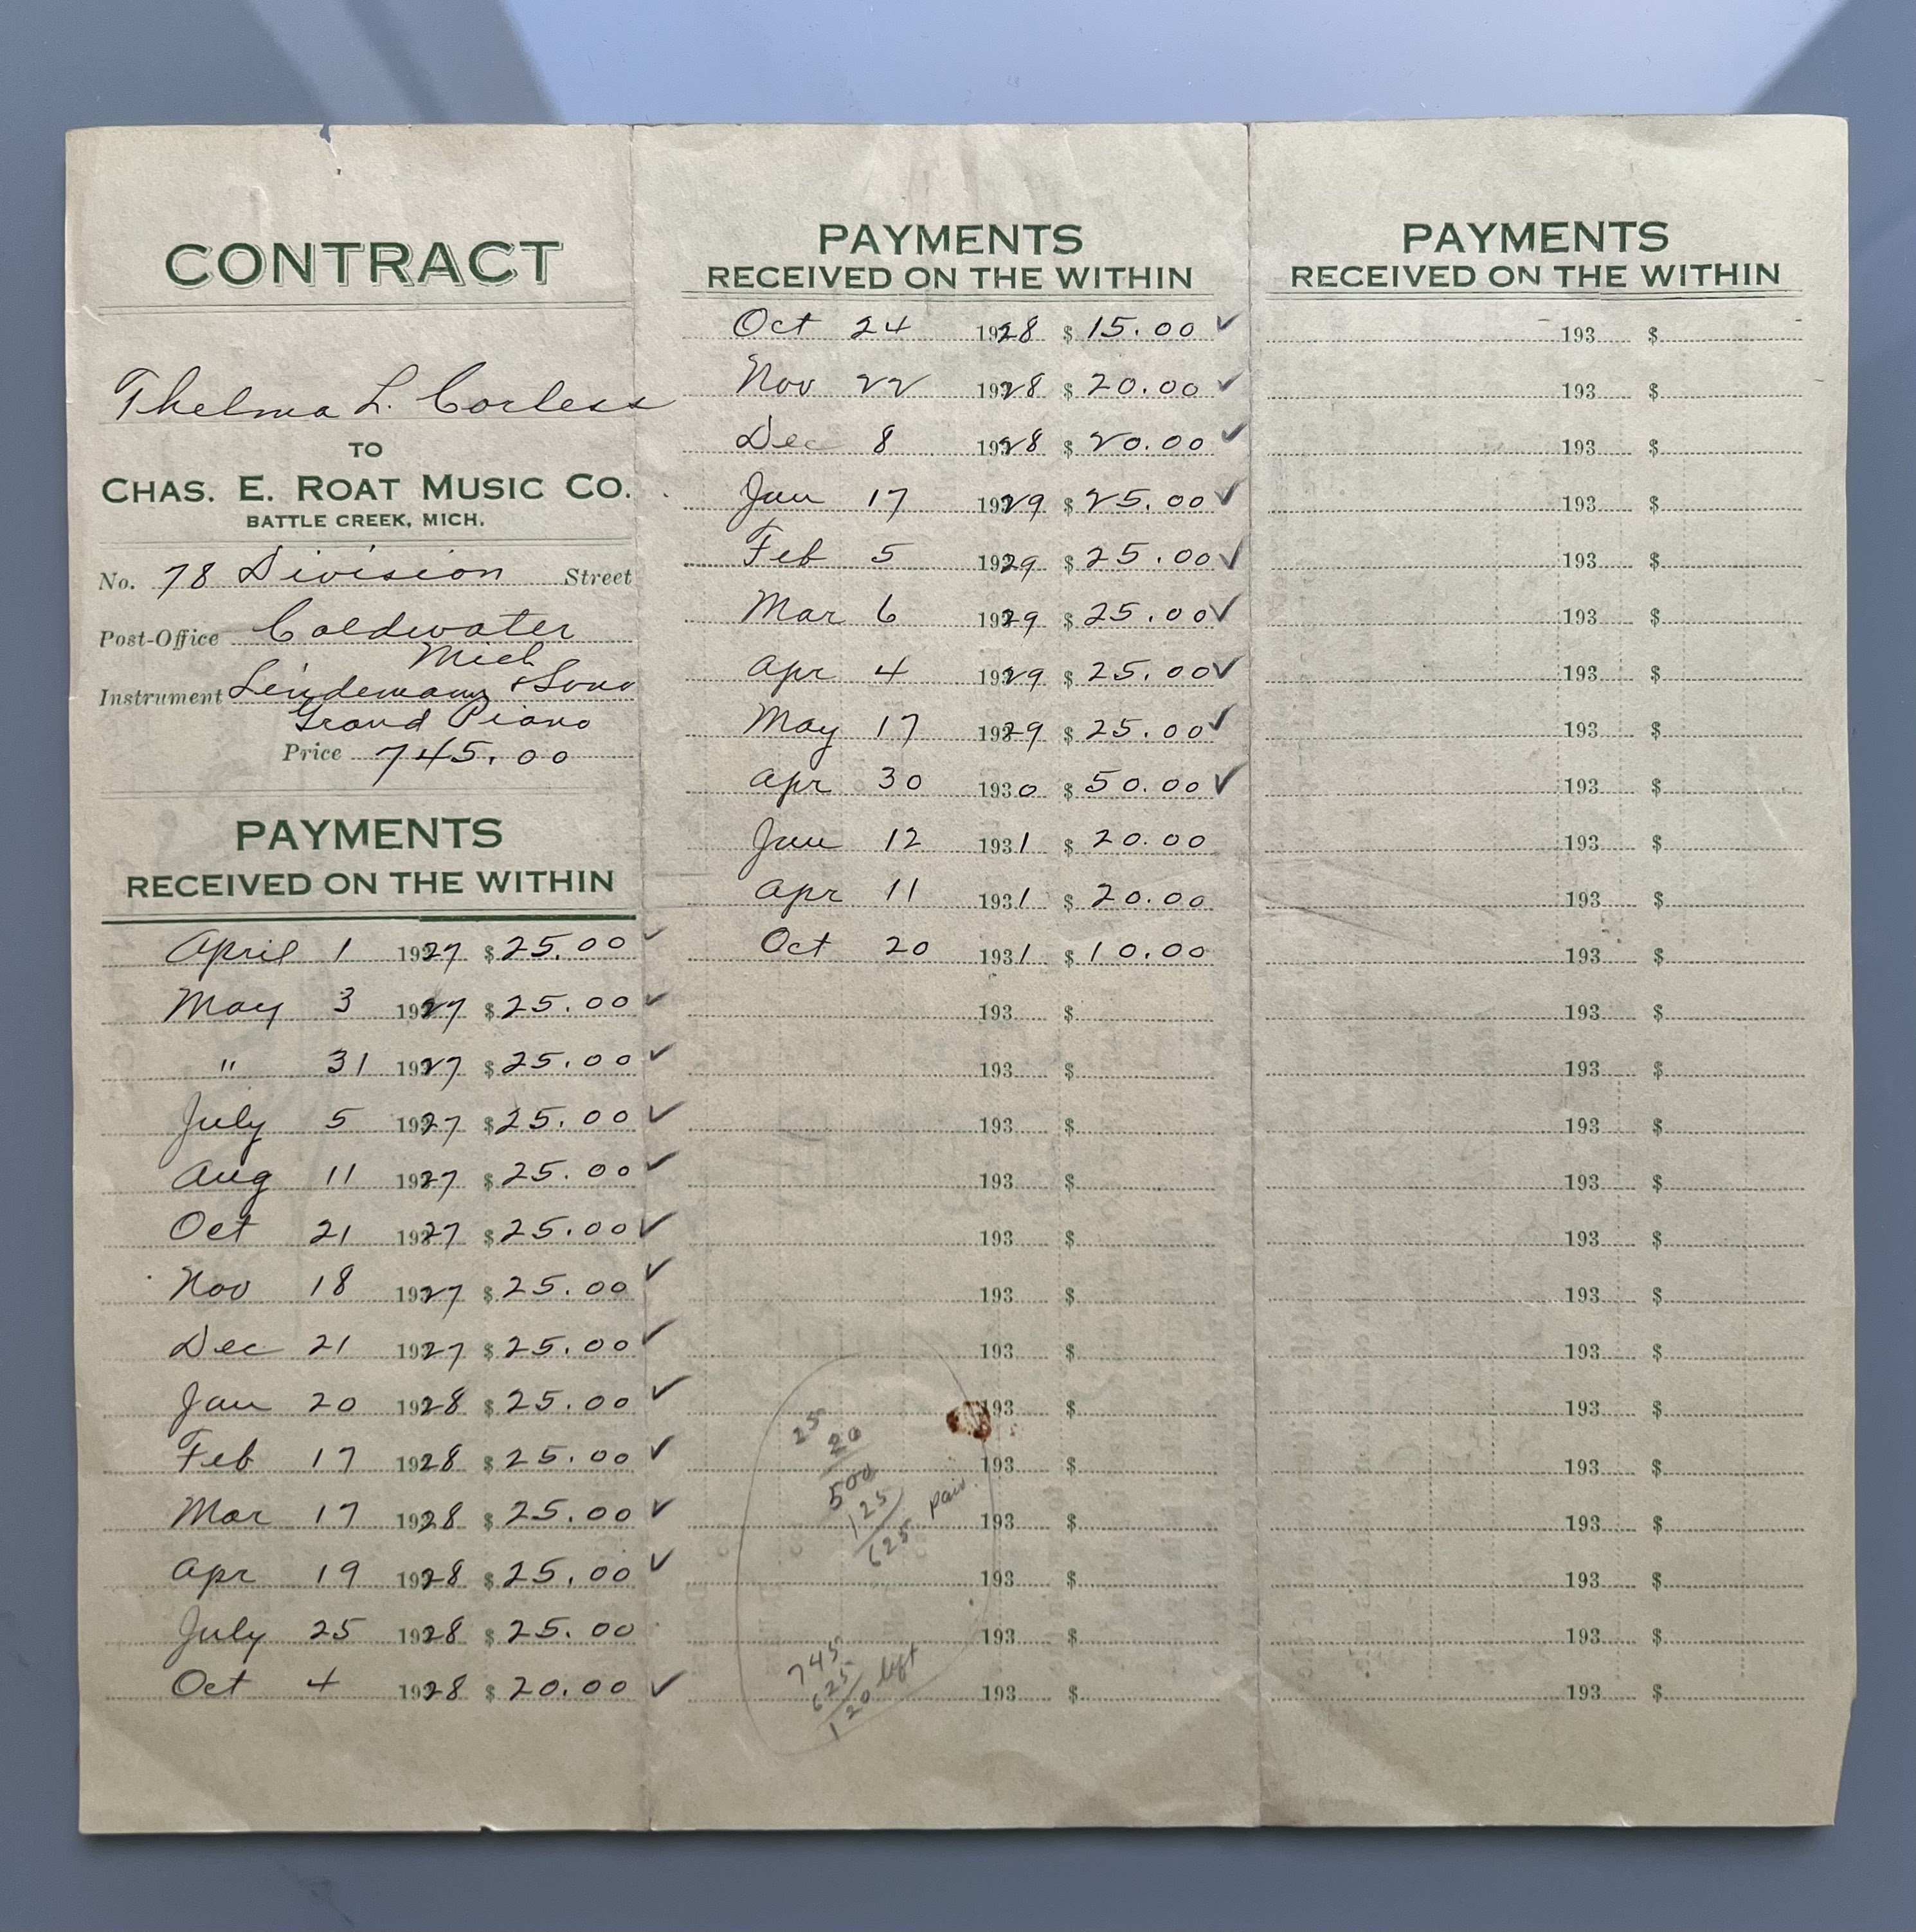 CONTRACT
Thelma L. Corless
TO
CHAS. E. ROAT MUSIC CO.
BATTLE CREEK, MICH.
No. 78 Division Street
Post-Office Coldwater
Mich
Instrument Lindemann & Sons
Grand Piano
Price 745.00
PAYMENTS
RECEIVED ON THE WITHIN
April 1 1927 $25.00 ✓
May 3 1927 $25.00 ✓
" 31 1927 $25.00 ✓
July 5 1927 $25.00 ✓
Aug 11 1927 $25.00 ✓
Oct 21 1927 $25.00 ✓
Nov 18 1927 $25.00 ✓
Dec 21 1927 $25.00 ✓
Jan 20 1928 $25.00 ✓
Feb 17 1928 $25.00 ✓
Mar 17 1928 $25.00 ✓
Apr 19 1928 $25.00 ✓
July 25 1928 $25.00
Oct 4 1928 $20.00 ✓
PAYMENTS
RECEIVED ON THE WITHIN
Oct 24 1928 $15.00 ✓
Nov 22 1928 $20.00 ✓
Dec 8 1928 $20.00 ✓
Jan 17 1929 $25.00 ✓
Feb 5 1929 $25.00 ✓
Mar 6 1929 $25.00 ✓
Apr 4 1929 $25.00 ✓
May 17 1929 $25.00 ✓
Apr 30 1930 $50.00 ✓
Jan 12 1931 $20.00
Apr 11 1931 $20.00
Oct 20 1931 $10.00
193 $
193 $
193 $
193 $
193 $
193 $
193 $
193 $
193 $
193 $
193 $
193 $
193 $
25
20
500
125
625 paid
745
625
120 left
PAYMENTS
RECEIVED ON THE WITHIN
193 $
193 $
193 $
193 $
193 $
193 $
193 $
193 $
193 $
193 $
193 $
193 $
193 $
193 $
193 $
193 $
193 $
193 $
193 $
193 $
193 $
193 $
193 $
193 $
193 $